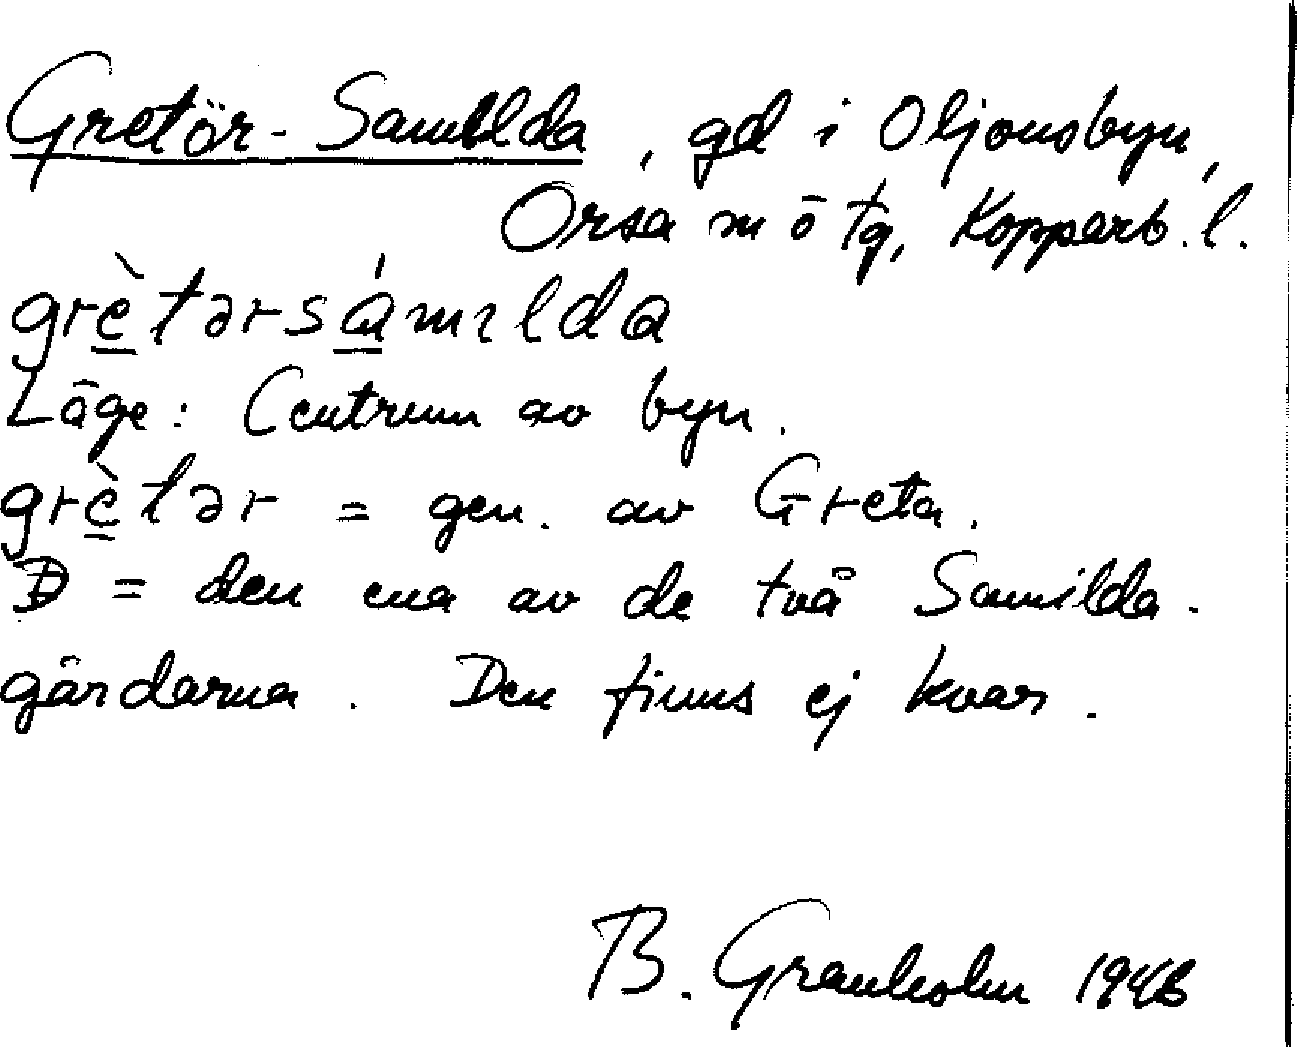 Gretör-Samilda, gd i Oljonsbyn,
Orsa m ö tg, Kopparb. l.
grè̱tərsá̱mɪlda
Läge: Centrum av byn.
grè̱tər = gen. av Greta.
D = den ena av de två Samilda-
gårdarna. Den finns ej kvar.
B. Granholm 1948